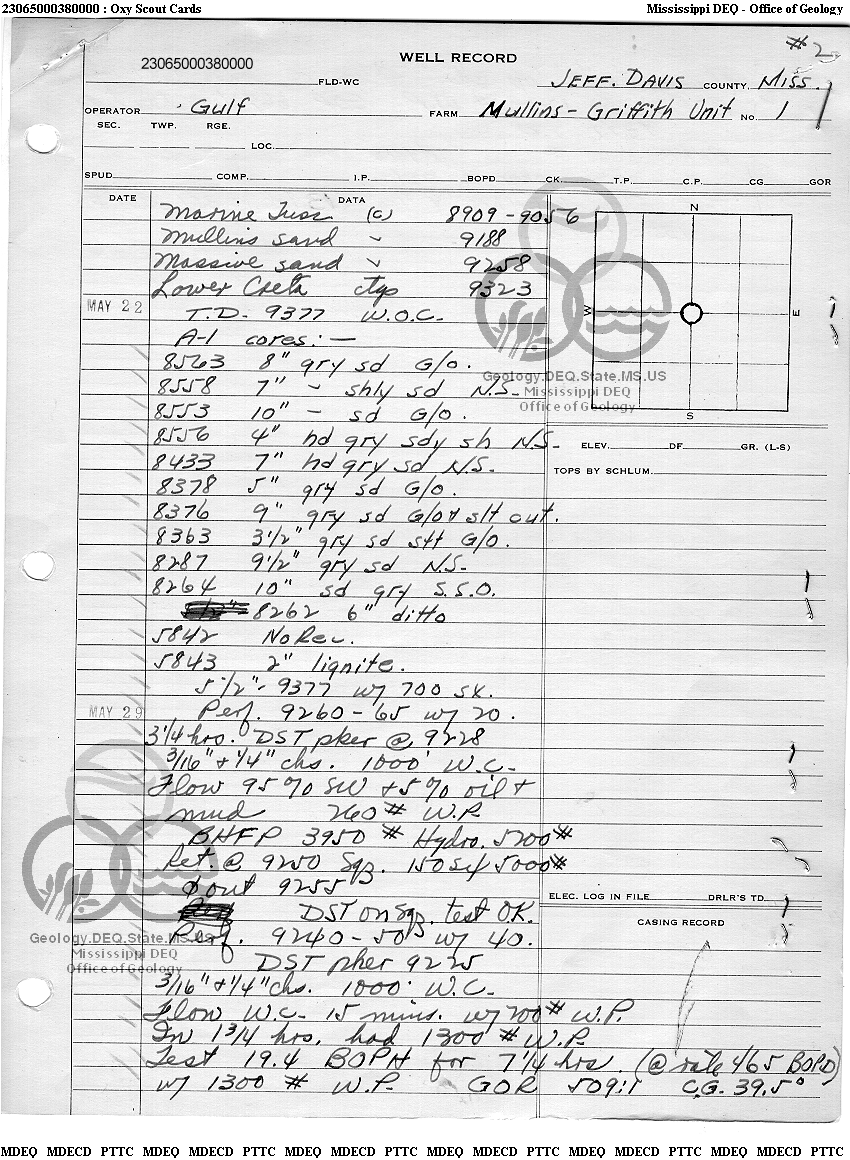 23065000380000 : Oxy Scout Cards Mississippi DEQ - Office of Geology
#2
23065000380000 WELL RECORD
FLD-WC JEFF. DAVIS COUNTY, MISS.
OPERATOR Gulf FARM Mullins - Griffith Unit NO. 1
SEC. TWP. RGE.
LOC.
SPUD. COMP. I.P. BOPD CK. T.P. C.P. CG GOR
DATE DATA
Marine Tusc (c) 8909 - 9056
Mullins sand " 9188
Massive sand " 9258
Lower Creta ctgs 9323
MAY 22 T.D. 9377 W.O.C.
A-1 cores: —
8563 8" gry sd G/O.
8558 7" - shly sd N.S.
8553 10" - sd G/O.
8556 4" hd gry sdy sh N.S.
8433 7" hd gry sd N.S.
8378 5" gry sd G/O.
8376 9" gry sd G/O & slt out.
8363 3 1/2" gry sd slt G/O.
8287 9 1/2" gry sd N.S.
8264 10" sd gry S.S.O.
8262 6" ditto
5842 No Rec.
5843 2" lignite.
5 1/2" - 9377 w/ 700 sx.
MAY 29 Perf. 9260 - 65 w/ 20.
3 1/4 hrs. DST pker @ 9228
3/16" + 1/4" chs. 1000' W.C.
Flow 95% SW + 5% oil +
mud 260 # W.P.
BHFP 3950 # Hydro. 5200 #
Ret. @ 9250 Sqz. 150 sx 5000 #
out 9255
DST on sqz. test O.K.
Perf. 9240 - 50 w/ 40.
DST pker 9225
3/16" + 1/4" chs. 1000' W.C.
Flow W.C. 15 mins. w/ 700 # W.P.
In 1 3/4 hrs. had 1300 # W.P.
Test 19.4 BOPH for 7 1/4 hrs. (@ rate 465 BOPD)
w/ 1300 # W.P. GOR 509:1 C.G. 39.5°
N
W
E
S
ELEV. DF. GR. (L-S)
TOPS BY SCHLUM.
ELEC. LOG IN FILE DRLR'S TD.
CASING RECORD
Geology.DEQ.State.MS.US
Mississippi DEQ
Office of Geology
Geology.DEQ.State.MS.US
Mississippi DEQ
Office of Geology
MDEQ MDECD PTTC MDEQ MDECD PTTC MDEQ MDECD PTTC MDEQ MDECD PTTC MDEQ MDECD PTTC MDEQ MDECD PTTC